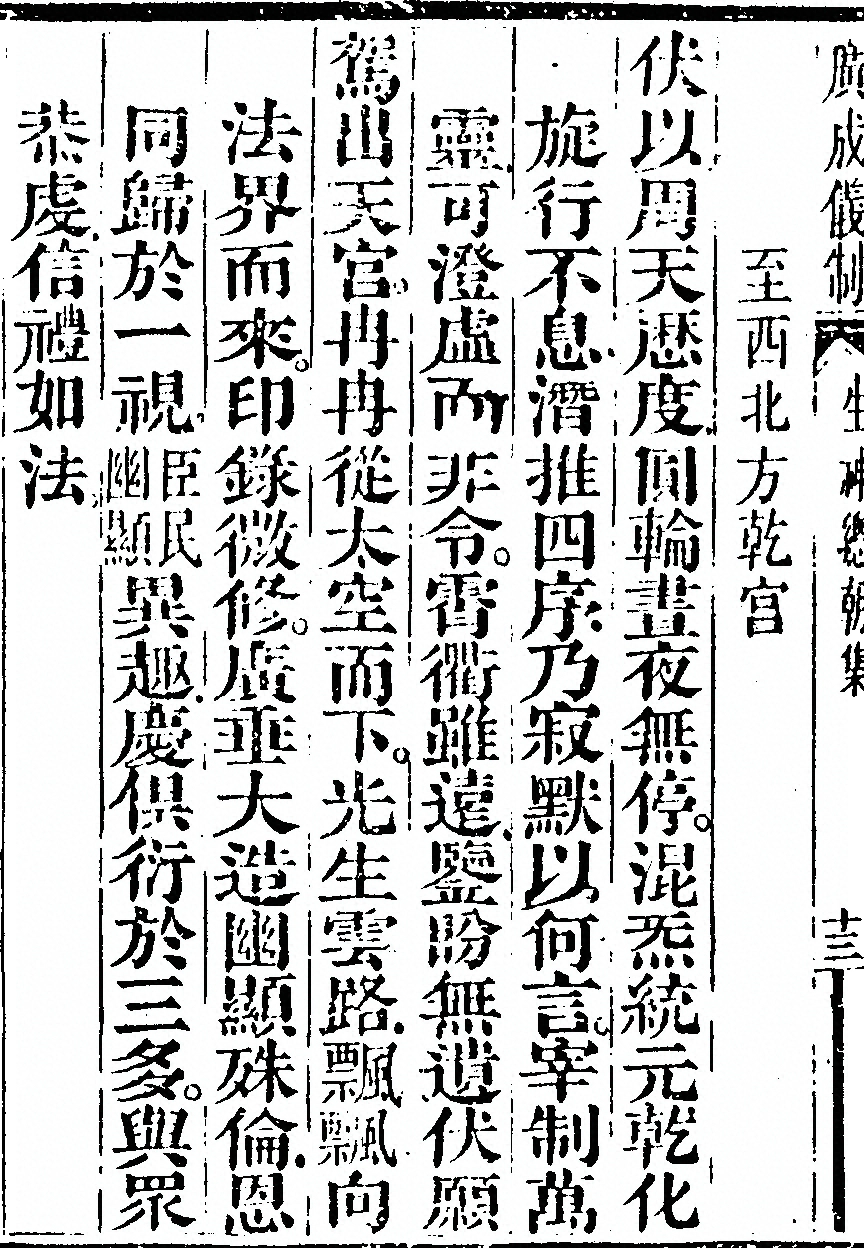 廣成儀制 生神總朝集 十三
至西北方乾宮
伏以周天歷度圓輪晝夜無停。混炁統元乾化
旋行不息潛推四序乃寂默以何言。宰制萬
靈可澄虛而非令。霄衢雖遠鑒盼無遺伏願
駕出天宮。冉冉從太空而下。光生雲路飄飄向
法界而來。印錄微修。廣垂大造幽顯殊倫恩
同歸於一視臣民幽顯異趣慶俱衍於三多。與眾
恭虔信禮如法